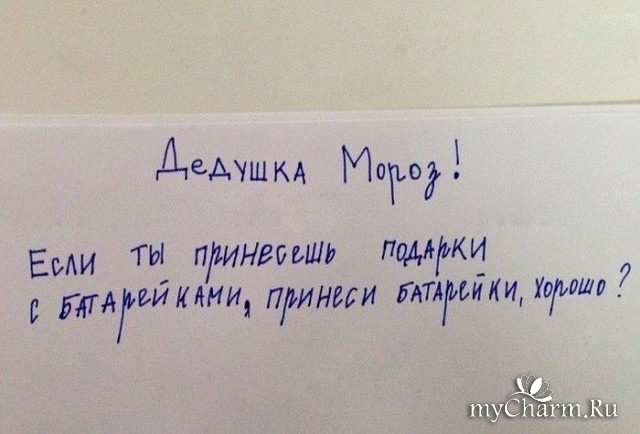 Дедушка Мороз!
Если ты принесешь подарки
с батарейками, принеси батарейки, хорошо?
myCharm.Ru